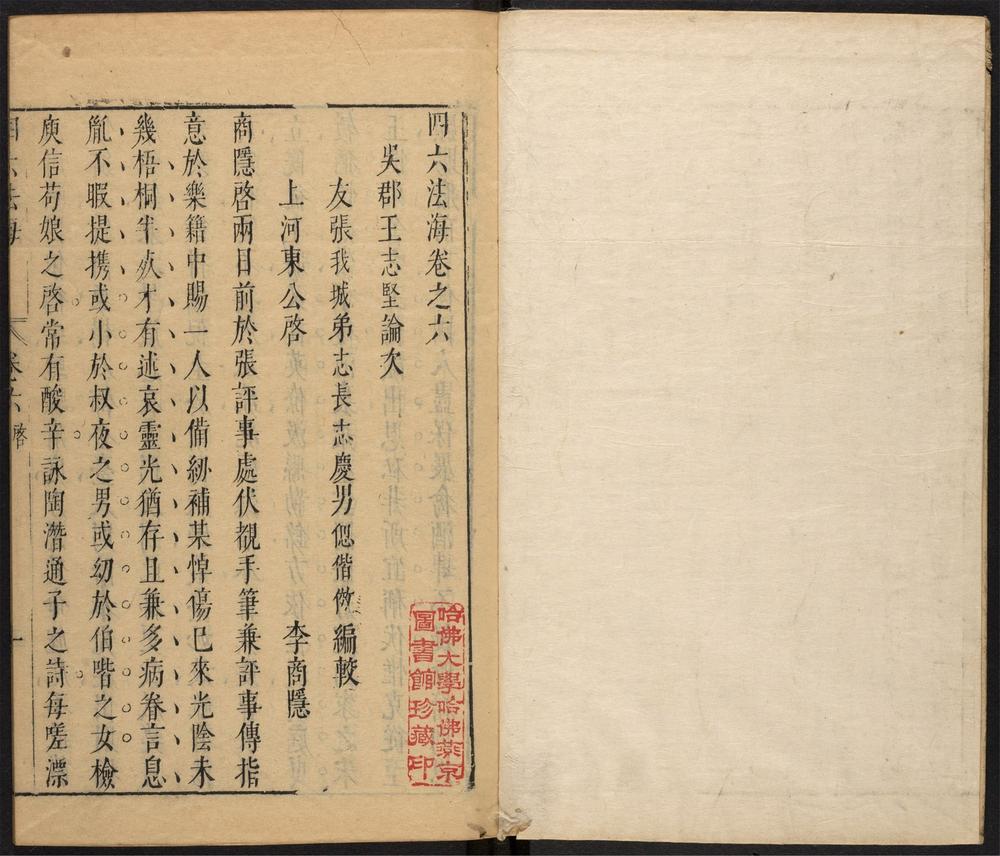 四六法海卷之六
吳郡王志堅論次
友張我城弟志長志慶男偲偕儆編較
上河東公啓 李商隱
商隱啓兩日前於張評事處伏覩手筆兼評事傳指
意於樂籍中賜一人以備紉補某悼傷巳來光陰未
幾梧桐半死才有述哀靈光猶存且兼多病眷言息
胤不暇提携或小於叔夜之男或幼於伯喈之女檢
庾信荀娘之啓常有酸辛詠陶潛通子之詩每嗟漂
四六法海 卷六 啓 一
哈佛大學哈佛燕京
圖書館珍藏印